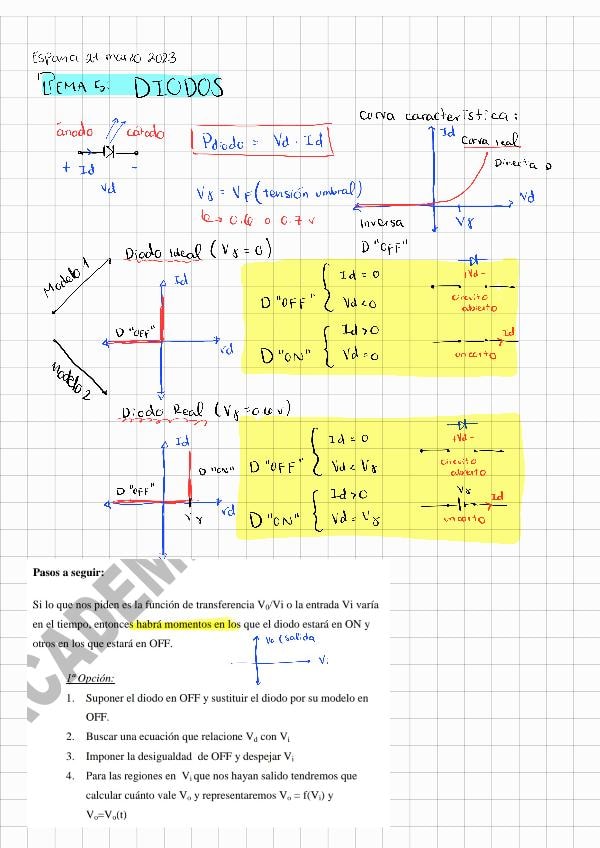 España 21 marzo 2023
TEMA 5: DIODOS
ánodo cátodo
+ Id -
Vd
Pdiodo = Vd · Id
Vγ = VF (tensión umbral)
↳ 0.6 o 0.7 v
Curva característica:
Id
Curva real
Directa D
Vd
Vγ
Inversa
D "OFF"
Modelo 1
Diodo Ideal (Vγ = 0)
Id
D "OFF"
Vd
D "OFF" { Id = 0
Vd < 0
D "ON" { Id > 0
Vd = 0
+Vd -
circuito
abierto
Id
un corto
Modelo 2
Diodo Real (Vγ = 0.6 v)
Id
D "ON"
D "OFF"
Vd
Vγ
D "OFF" { Id = 0
Vd < Vγ
D "ON" { Id > 0
Vd = Vγ
+Vd -
circuito
abierto
Vγ
Id
un corto
Pasos a seguir:
Si lo que nos piden es la función de transferencia V₀/Vi o la entrada Vi varía
en el tiempo, entonces habrá momentos en los que el diodo estará en ON y
otros en los que estará en OFF.
Vo (salida
Vi
1ª Opción:
1. Suponer el diodo en OFF y sustituir el diodo por su modelo en
OFF.
2. Buscar una ecuación que relacione Vd con Vi
3. Imponer la desigualdad de OFF y despejar Vi
4. Para las regiones en Vi que nos hayan salido tendremos que
calcular cuánto vale Vo y representaremos Vo = f(Vi) y
Vo=Vo(t)